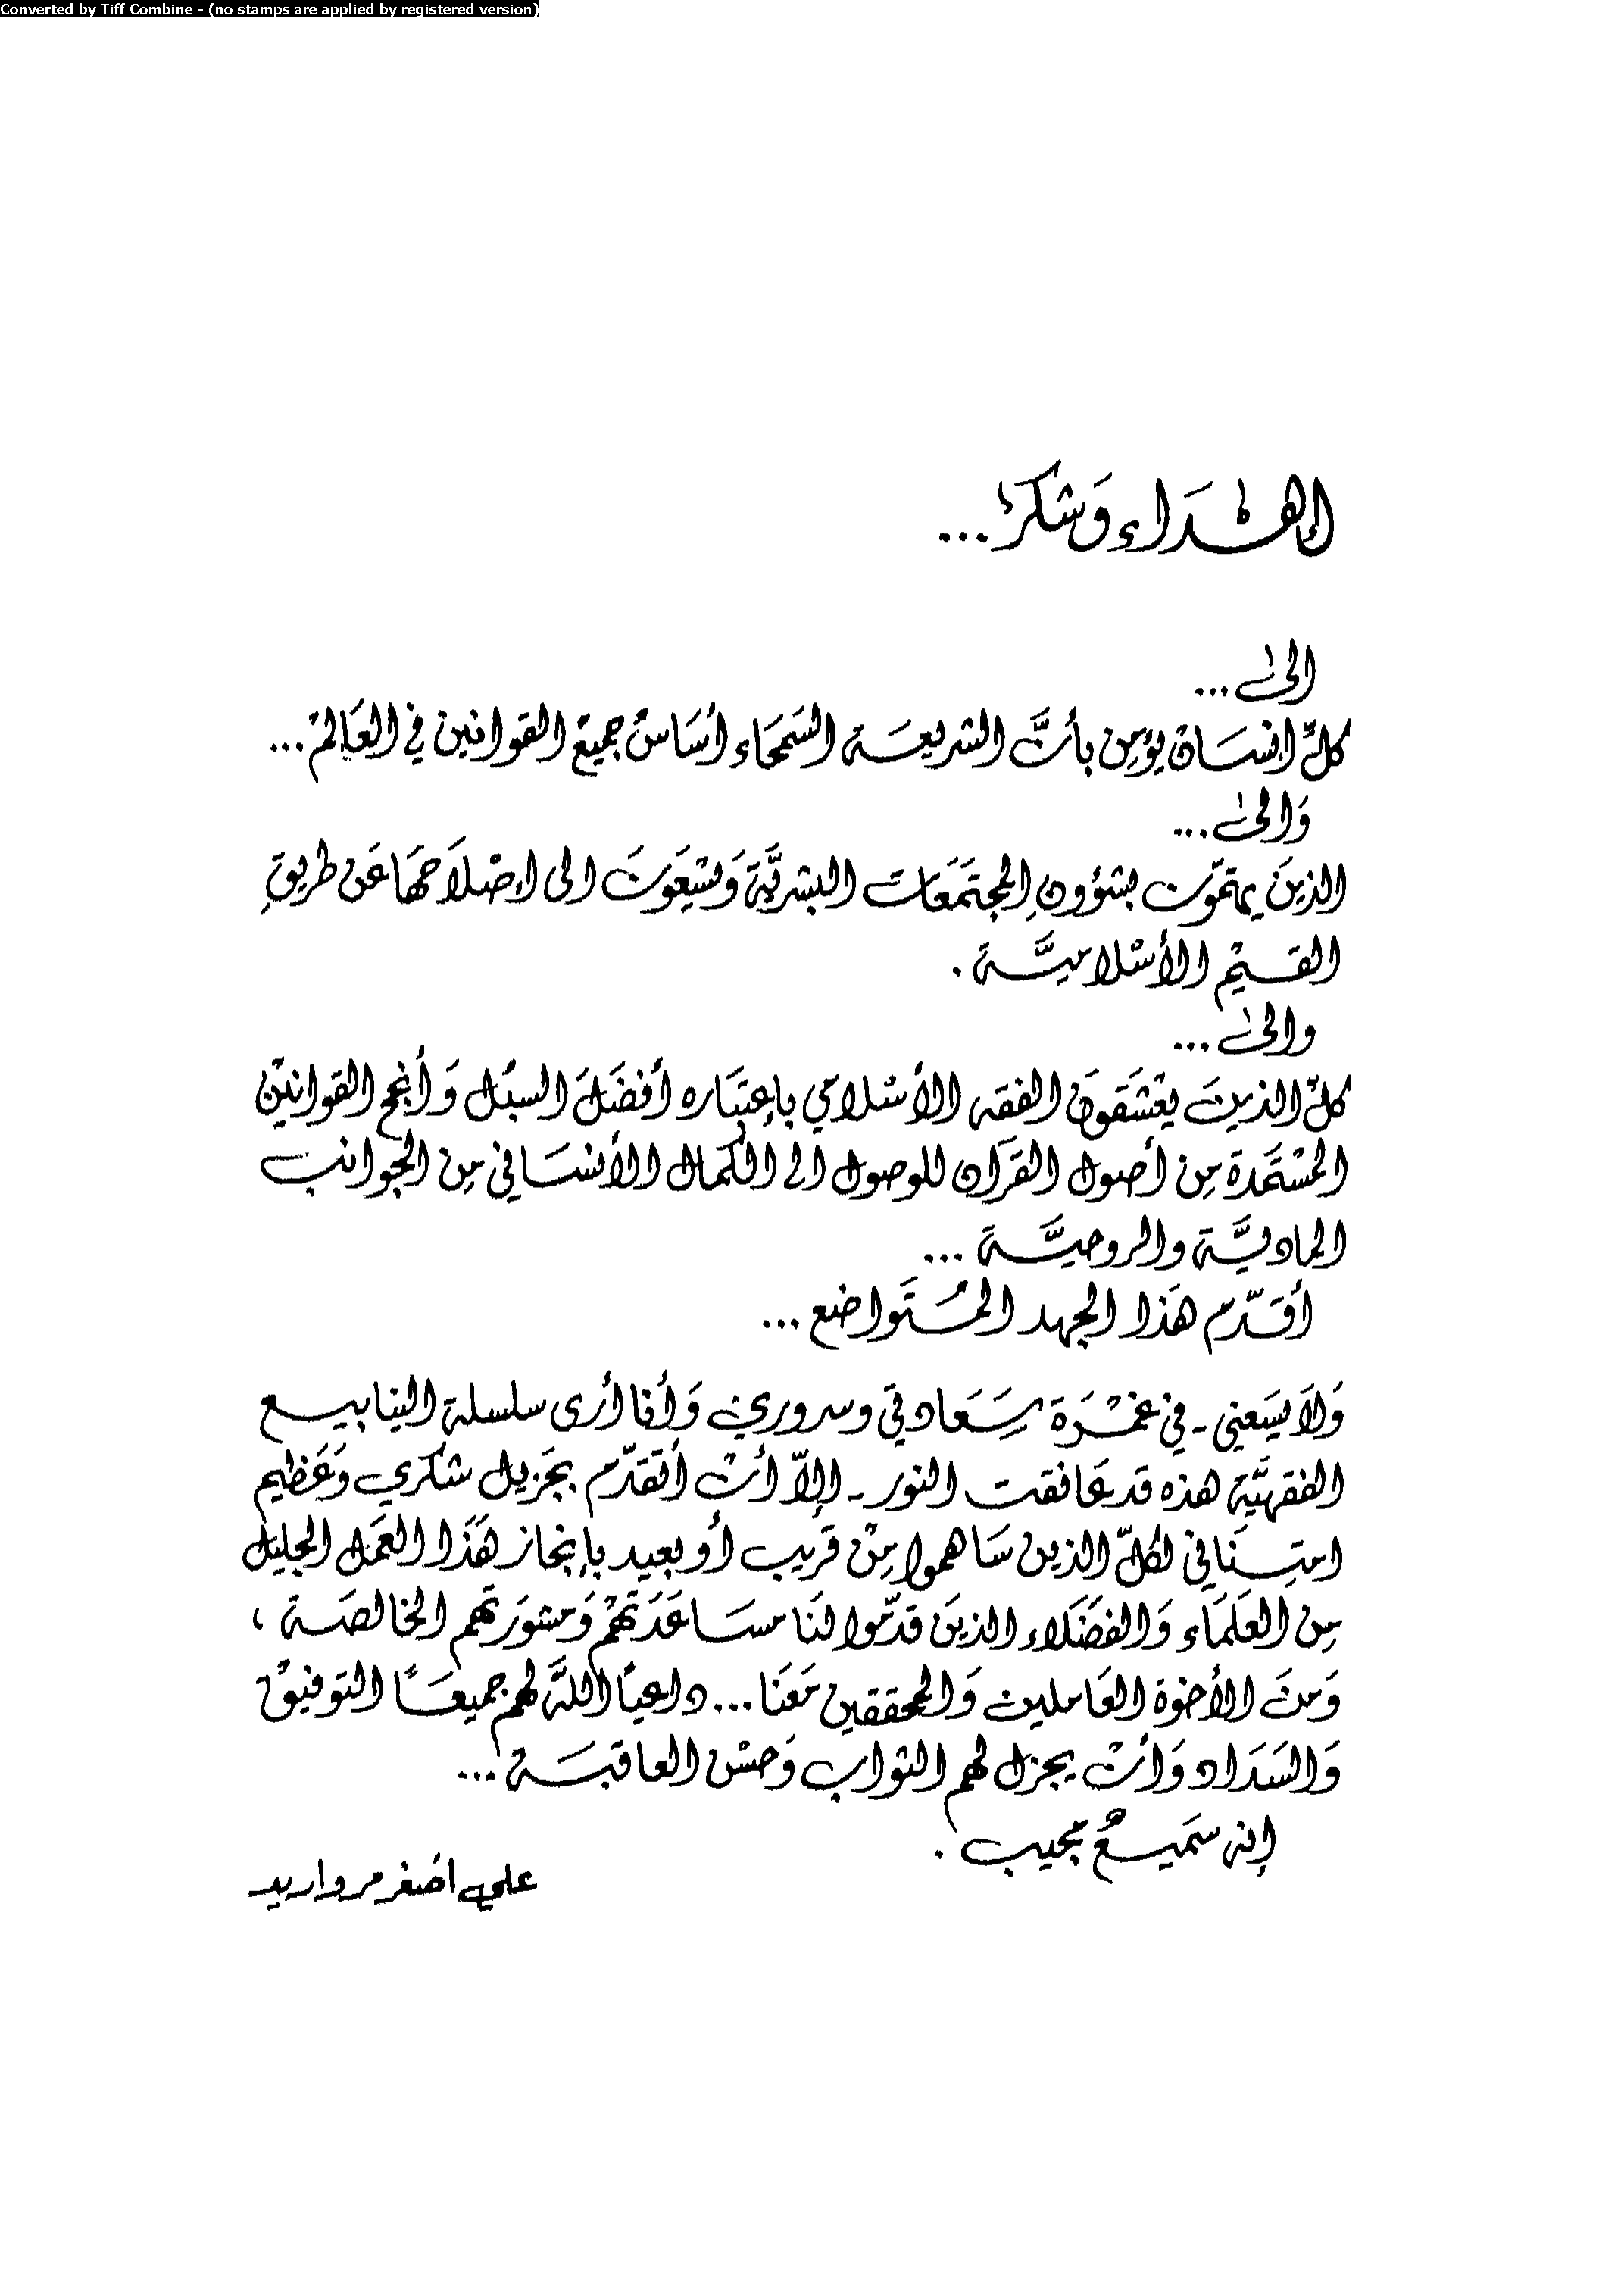 Converted by Tiff Combine - (no stamps are applied by registered version)
إهداء وَشكر ...
الىٰ ...
كلّ انسَان يؤمِن بأنَّ الشريعَة السَمحَاء أسَاسُ جميع القوانين في العَالم ...
وَالىٰ ...
الذينَ يهتمّون بشؤونِ المجتمَعَات البشريَّة وَيسْعَونَ الى اءصْلاَحهَا عَن طريقِ
القيم الأسْلاميَّة .
والىٰ ...
كلّ الذينَ يعْشَقونَ الفقه الأسْلامي بإعتبَاره أفضَلَ السبُل وَأنجح القوانين
المسْتمَدة مِن أصول القرآن للوصول الى الكمال الأنسَاني مِن الجوانب
الماديَّة والروحيَّة ...
أقدّم هَذا الجهد المتَواضع ...
وَلاَ يسَعني - في غمْرَة سَعَادتي وسروري وَأنا أرى سلسلة الينابيع
الفقهيَّة هذه قد عَانقت النور - إلاّ أنْ أتقدّم بجَزيل شكري وَعَظيم
امتِنَاني لكلّ الذين سَاهموا مِنْ قريب أو بعيد بإنجاز هَذَا العمَل الجليل
مِن العلمَاء وَالفضَلاء الذينَ قدّموا لنَا مسَاعَدَتهُمْ وَمشورَتهم الخالصَة ،
وَمنَ الأخوة العَاملين وَالمحققين مَعَنا ... داعياً اللَّهَ لهم جميعاً التوفيق
وَالسَدَاد وَأنْ يجزل لهم الثواب وَحسْن العاقبَة ...
إنه سَميعٌ مجيب .
علي اصْغر مرواريد